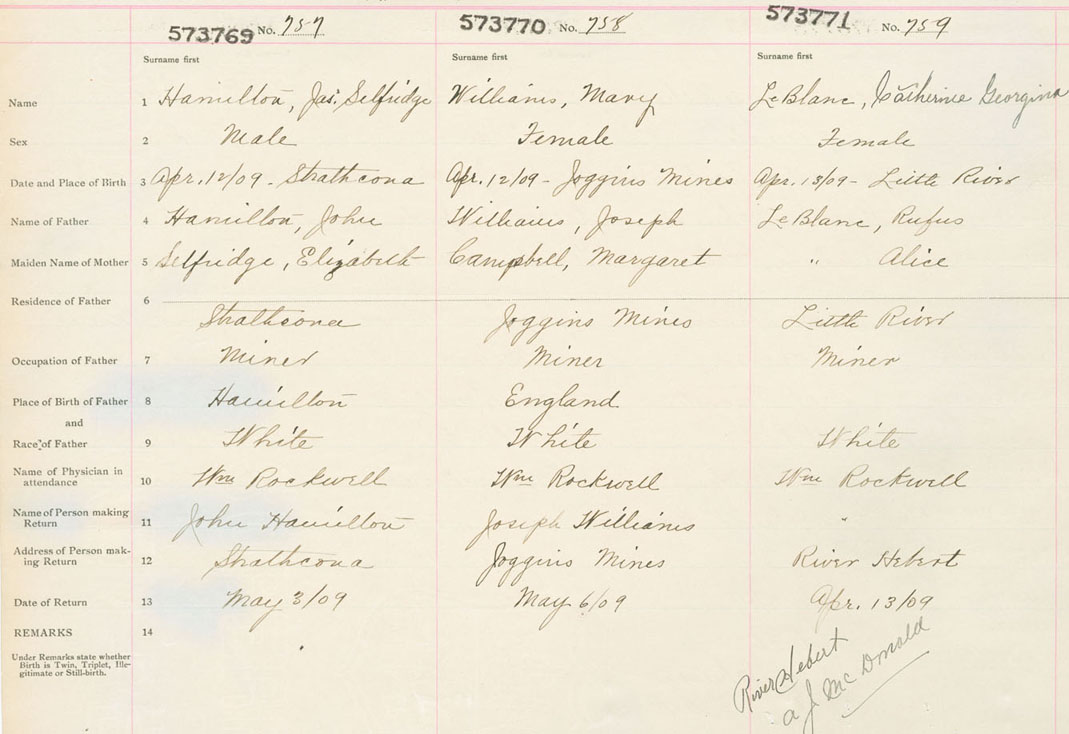 573769 No. 757 573770 No. 758 573771 No. 759
Surname first Surname first Surname first
Name 1 Hamilton, Jas. Selfridge Williams, Mary LeBlanc, Catherine Georgina
Sex 2 Male Female Female
Date and Place of Birth 3 Apr. 12/09 - Strathcona Apr. 12/09 - Joggins Mines Apr. 13/09 - Little River
Name of Father 4 Hamilton, John Williams, Joseph LeBlanc, Rufus
Maiden Name of Mother 5 Selfridge, Elizabeth Campbell, Margaret " Alice
Residence of Father 6
Strathcona Joggins Mines Little River
Occupation of Father 7 Miner Miner Miner
Place of Birth of Father 8 Hamilton England
and
Race of Father 9 White White White
Name of Physician in
attendance 10 Wm Rockwell Wm Rockwell Wm Rockwell
Name of Person making
Return 11 John Hamilton Joseph Williams "
Address of Person mak-
ing Return 12 Strathcona Joggins Mines River Hebert
Date of Return 13 May 3/09 May 6/09 Apr. 13/09
REMARKS 14
Under Remarks state whether
Birth is Twin, Triplet, Ille-
gitimate or Still-birth.
River Hebert
A J McDonald